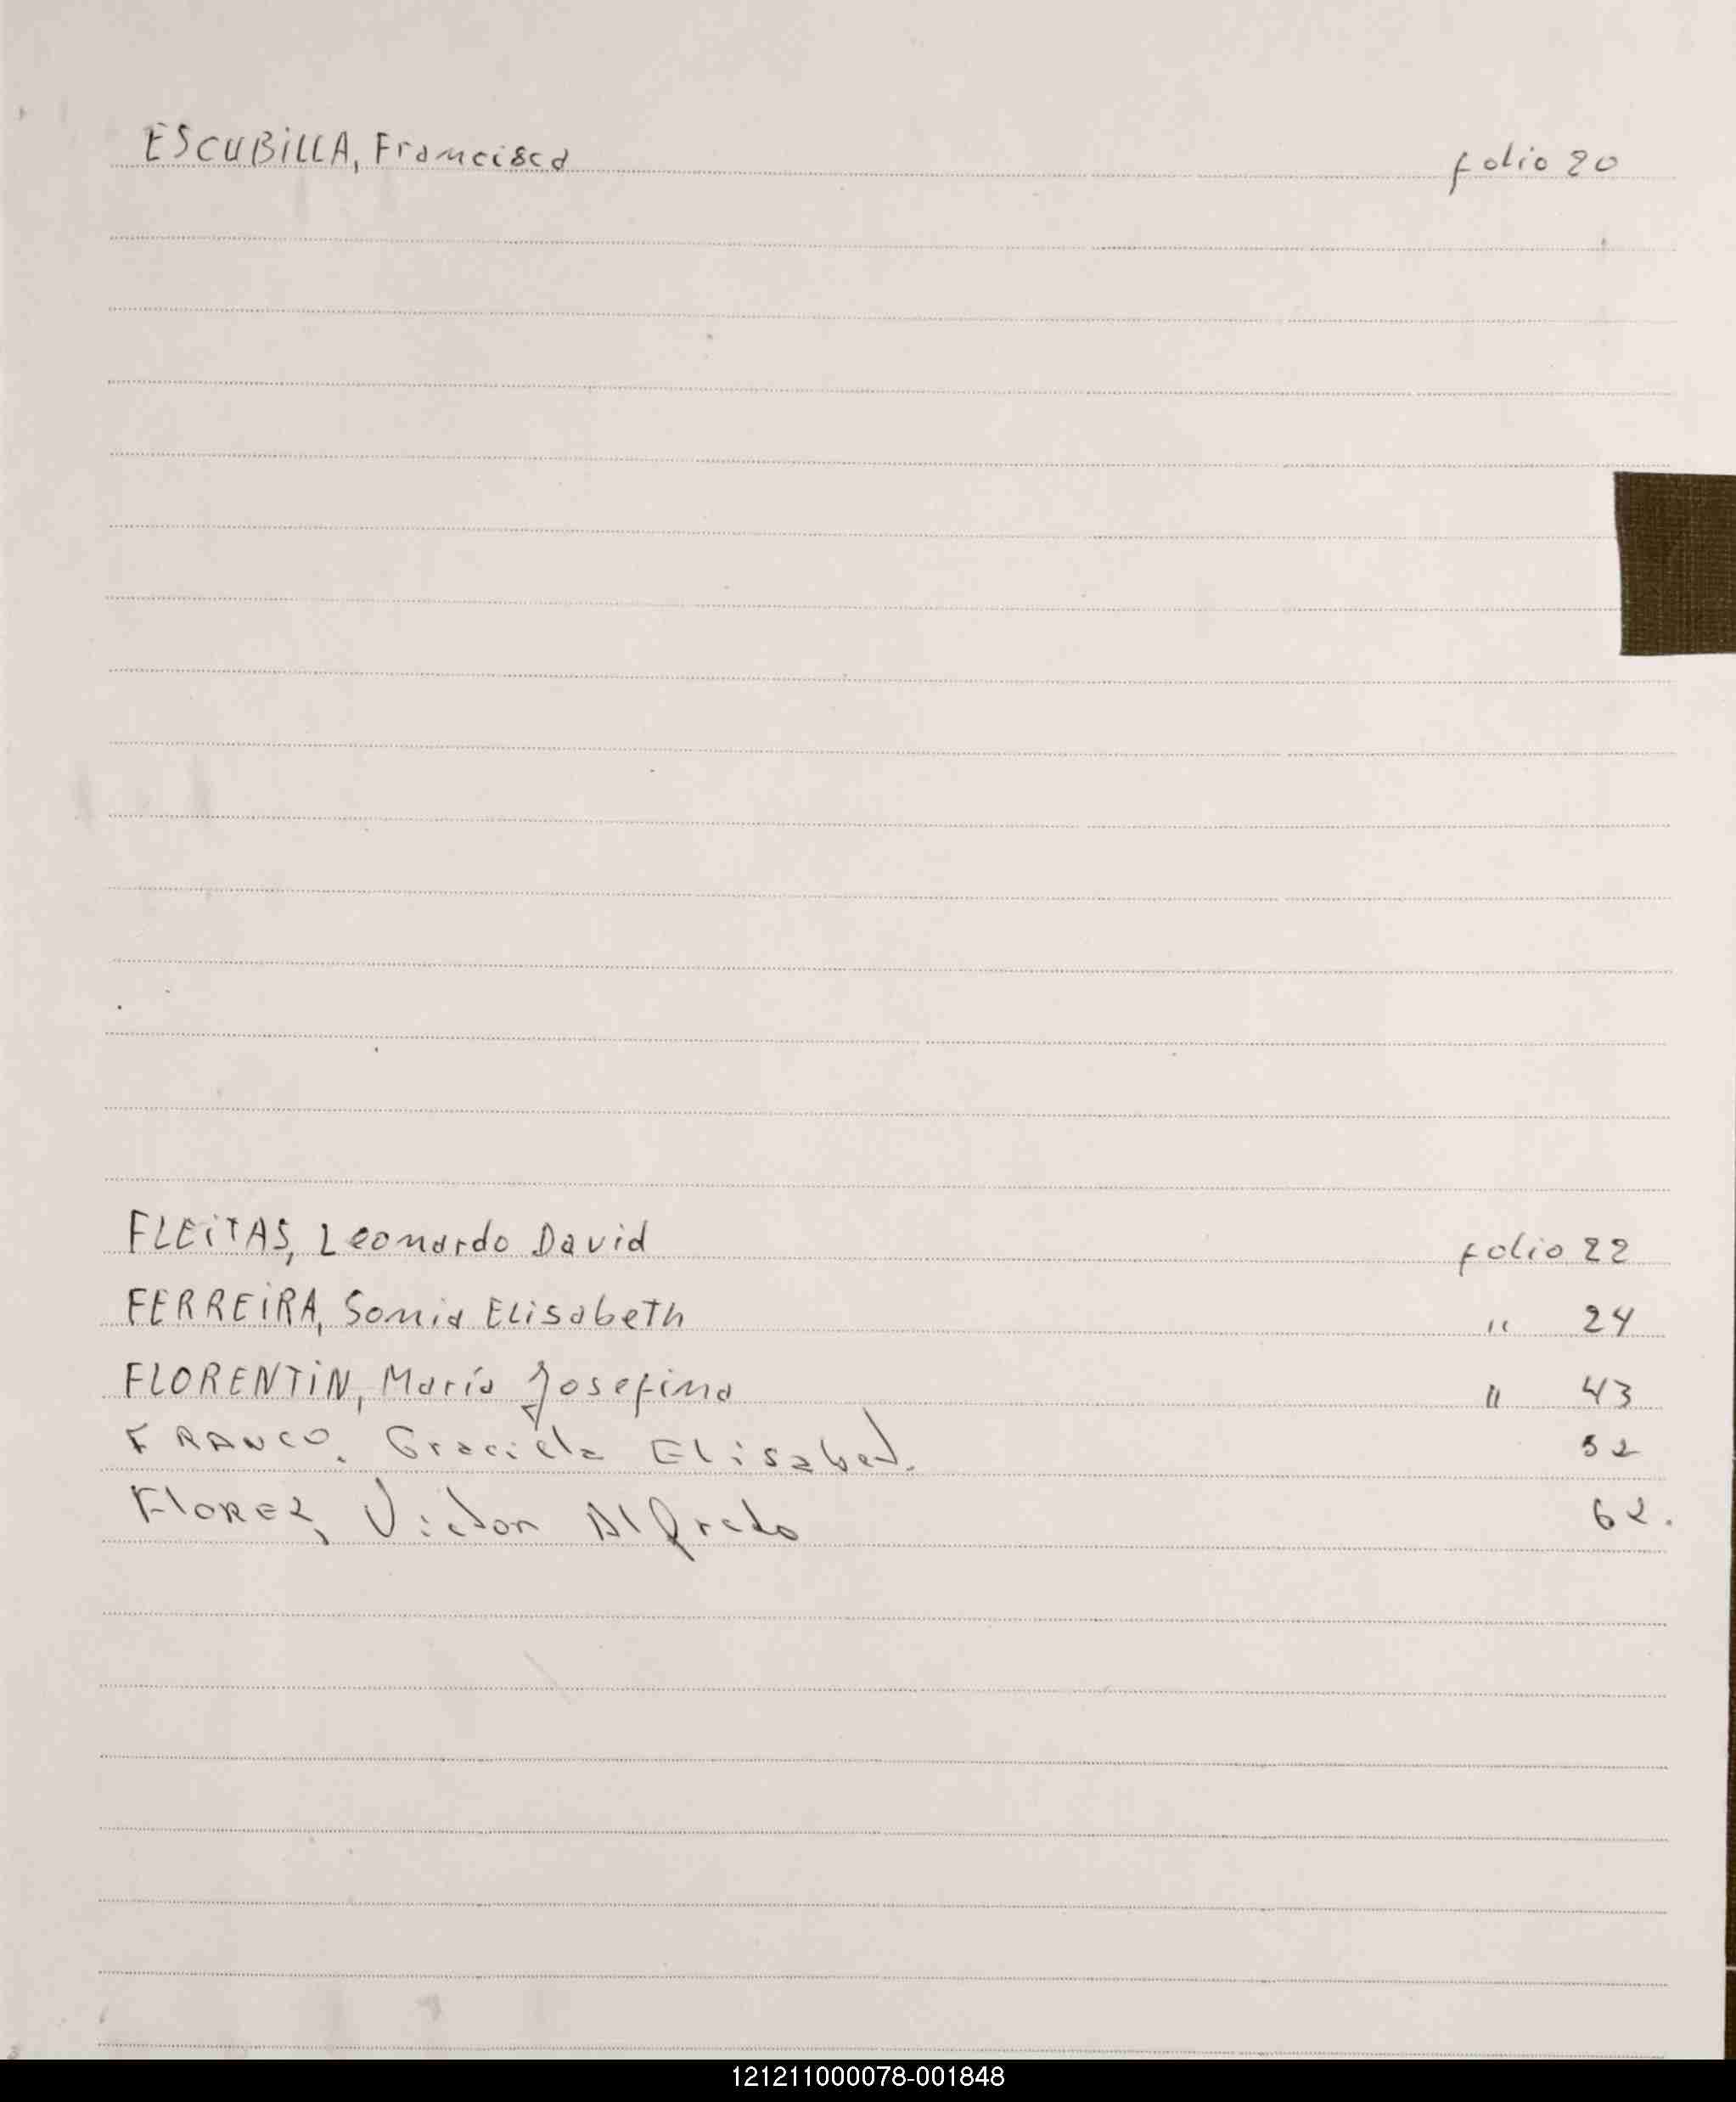 ESCUBiLLA, Francisca folio 20
FLEiTAS, Leonardo David folio 22
FERREiRA, Sonia Elisabeth " 24
FLORENTiN, María Josefina " 43
FRANCO. Graciela Elisabet. 52
FloREZ, Victor Alfredo 62.
121211000078-001848